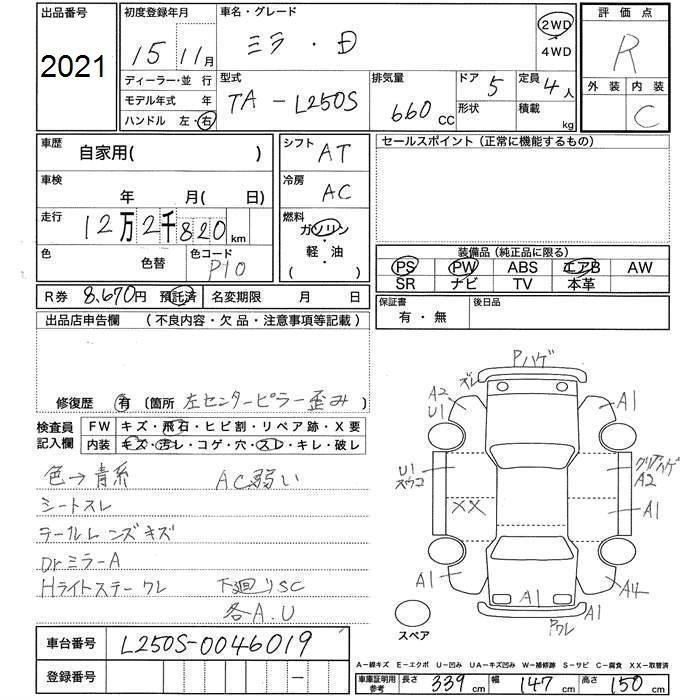 出品番号
2021
初度登録年月
15 11月
ディーラー・並 行
モデル年式 年
ハンドル 左・右
車名・グレード
ミラ・D
2WD
・
4WD
型式
TA-L250S
排気量
660 CC
ドア 5
形状
定員 4人
積載
kg
評価点
R
外装 内装
C
車歴
自家用( )
車検
年 月( 日)
走行
12万2千820km
色
色替
色コード
P10
シフト
AT
冷房
AC
燃料
ガソリン
・
軽・油
( )
セールスポイント(正常に機能するもの)
装備品(純正品に限る)
PS PW ABS エアB AW
SR ナビ TV 本革
R券 8,670円 預託済 名変期限 月 日
保証書
有・無
後日品
出品店申告欄 (不良内容・欠品・注意事項等記載)
修復歴 有 (箇所 左センターピラー歪み)
検査員
記入欄
FW キズ・飛石・ヒビ割・リペア跡・X要
内装 キズ・汚レ・コゲ・穴・スレ・キレ・破レ
色→青系 AC弱い
シートスレ
テールレンズキズ
Drミラー A
Hライトステーワレ 下廻りSC
各A.U
Pハゲ
ズレ
A2
U1
A1
U1
スウコ
XX
クリアハゲ
A2
A1
A1
A1
A1
A4
Pワレ
スペア
車台番号 L250S-0046019
登録番号 -
A-線キズ E-エクボ U-凹み UA-キズ凹み W-補修跡 S-サビ C-腐食 XX-取替済
車庫証明用
参考
長さ 339 cm 幅 147 cm 高さ 150 cm